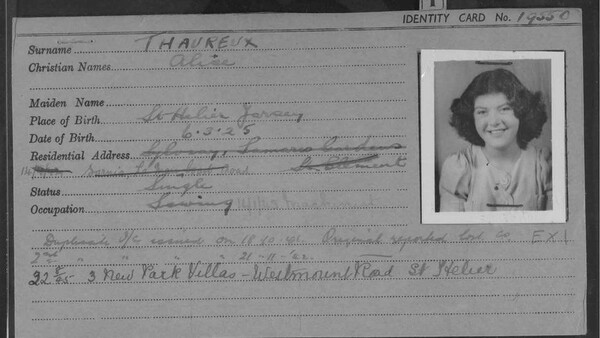 IDENTITY CARD No. 19550
Surname THAUREUX
Christian Names Alice
Maiden Name
Place of Birth St Helier Jersey
Date of Birth 6.3.25
Residential Address Samares Gardens
St Clement
Road
Status Single
Occupation Sewing
Duplicate I/C issued on 18.10.41. Original reported lost EX1
2nd " " " " 21-11-42.
22 8/45 3 New Park Villas - Westmount Road St Helier